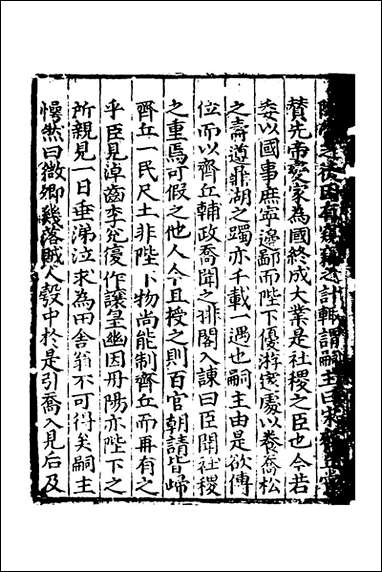 陳覺之徒因有窺竊之計輒謂嗣主曰宋齊
賛先帝変家為國終成大業是社稷之臣也今若
委以國事庶寧邊鄙而陛下優游𡨴處以養喬松
之壽遵鼎湖之躅亦千載一遇也嗣主由是欲傳
位而以齊丘輔政喬聞之排閤入諫曰臣聞社稷
之重焉可假之他人今且授之則百官朝請皆歸
齊丘一民尺土非陛下物尚能制齊丘而再有之
乎臣見淖齒李兊復作讓皇幽囚丹陽亦陛下之
所親見一日垂涕泣求為田舍翁不可得矣嗣主
愕然曰微卿幾落賊人彀中於是引喬入見后及